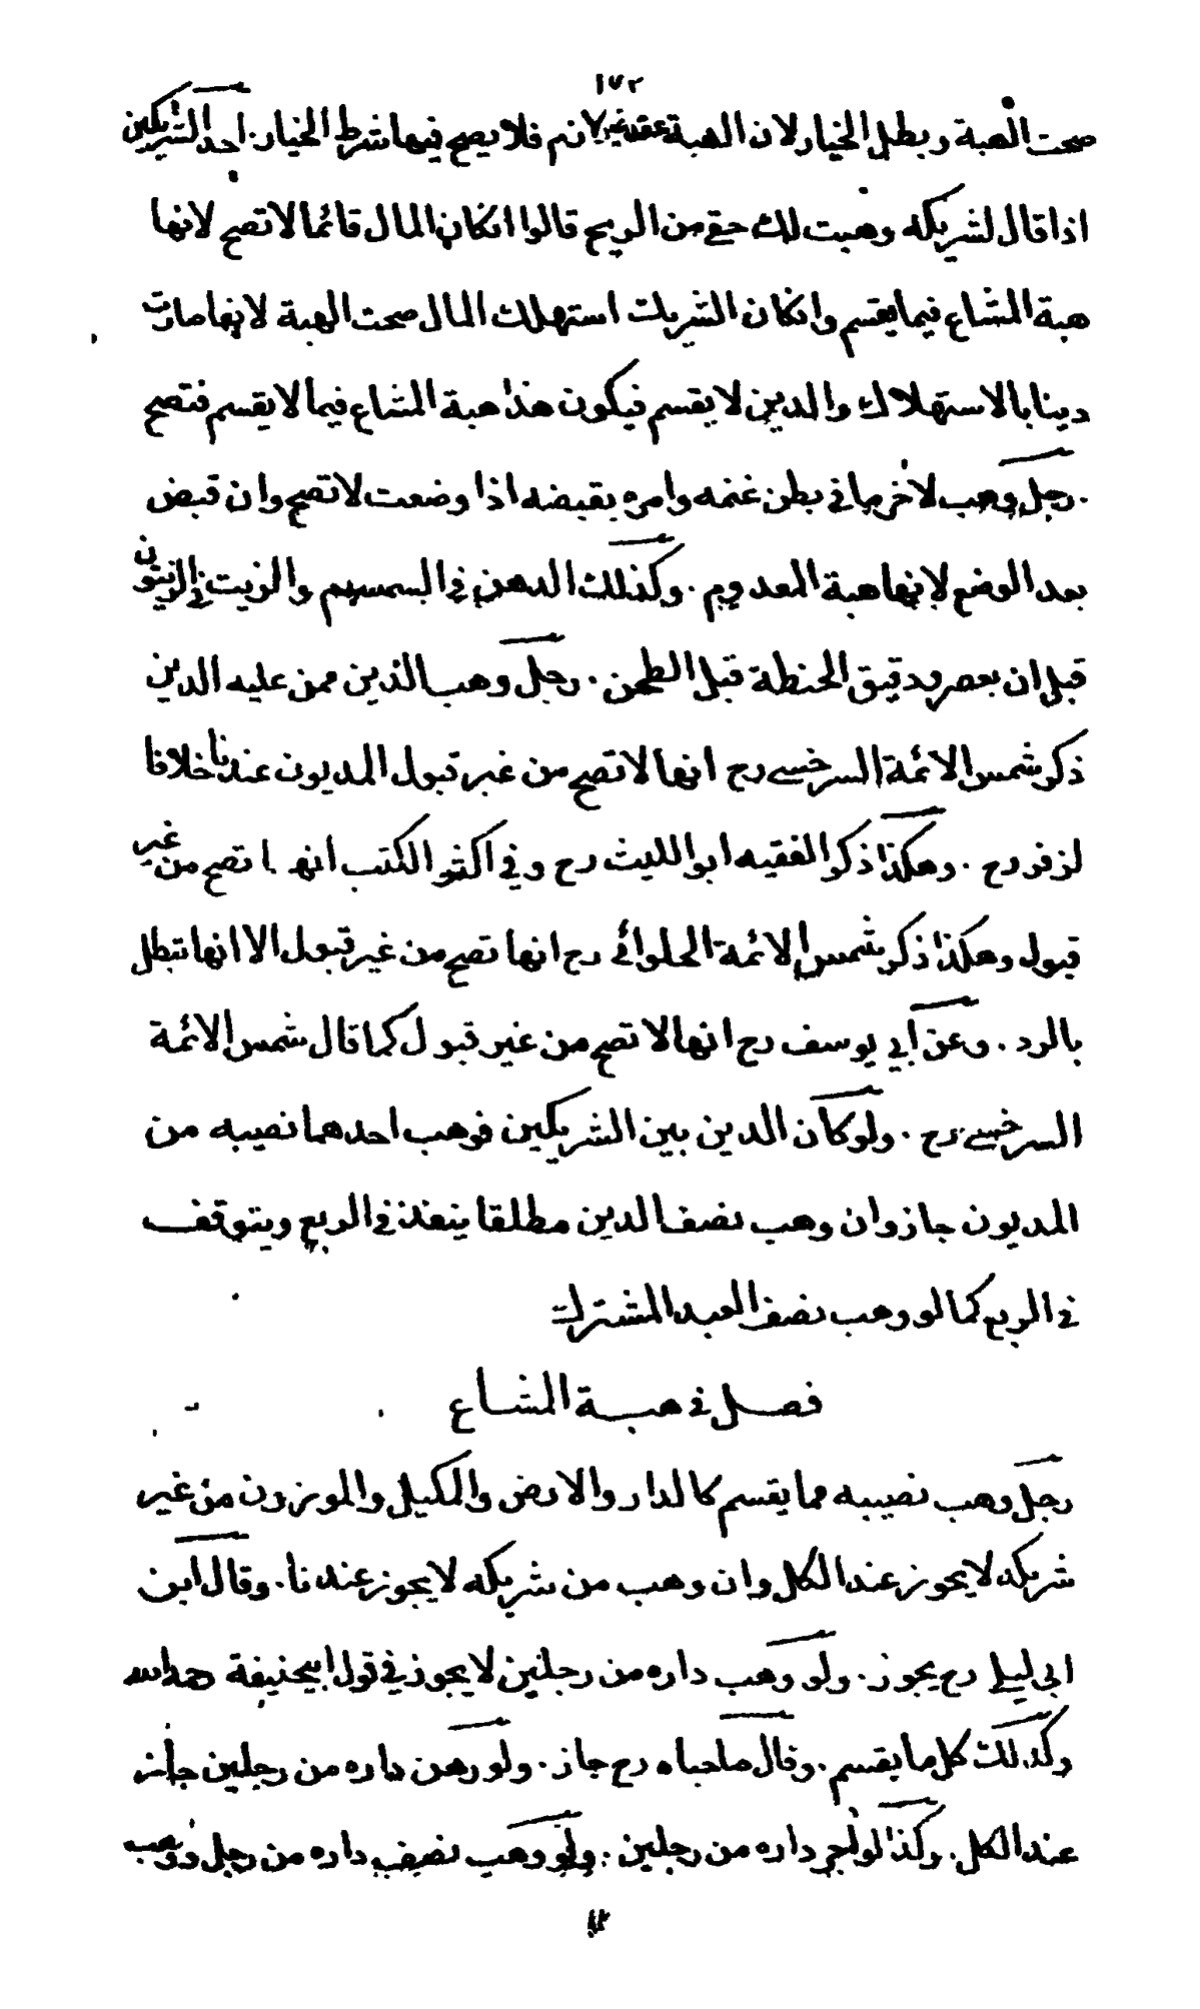 ١٧٢
صحت الهبة وبطل الخيار لان الهبة عقد غير لازم فلا يصح فيها شرط الخيار. احد الشريكين
اذا قال لشريكه وهبت لك حقي من الربح قالوا انكان المال قائما لا تصح لانها
هبة المشاع فيما يقسم وانكان الشريك استهلك المال صحت الهبة لانها صارت
دينا بالاستهلاك والدين لا يقسم فيكون هذا هبة المشاع فيما لا يقسم فتصح
. رجل وهب لاخر ما في بطن غنمه وامره بقبضه اذا وضعت لا تصح وان قبض
بعد الوضع لانها هبة المعدوم . وكذلك الدهن في السمسم والزيت في الزيتون
قبل ان يعصر ودقيق الحنطة قبل الطحن . رجل وهب الدين ممن عليه الدين
ذكر شمس الائمة السرخسي رح انها لا تصح من غير قبول المديون عندنا خلافا
لزفر رح . وهكذا ذكر الفقيه ابو الليث رح وفي اكثر الكتب انها تصح من غير
قبول وهكذا ذكر شمس الائمة الحلوائي رح انها تصح من غير قبول الا انها تبطل
بالرد . وعن ابي يوسف رح انها لا تصح من غير قبول كما قال شمس الائمة
السرخسي رح . ولو كان الدين بين الشريكين فوهب احدهما نصيبه من
المديون جاز وان وهب نصف الدين مطلقا ينفذ في الربع ويتوقف
في الربع كما لو وهب نصف العبد المشترك
فصل في هبة المشاع
رجل وهب نصيبه مما يقسم كالدار والارض والمكيل والموزون من غير
شريكه لا يجوز عند الكل وان وهب من شريكه لا يجوز عندنا . وقال ابن
ابي ليلى رح يجوز . ولو وهب داره من رجلين لا يجوز في قول ابيحنيفة رحمه الله
وكذلك كل ما يقسم . وقال صاحباه رح جاز . ولو رهن داره من رجلين جاز
عند الكل . وكذا لو آجر داره من رجلين . ولو وهب نصف داره من رجل ووهب